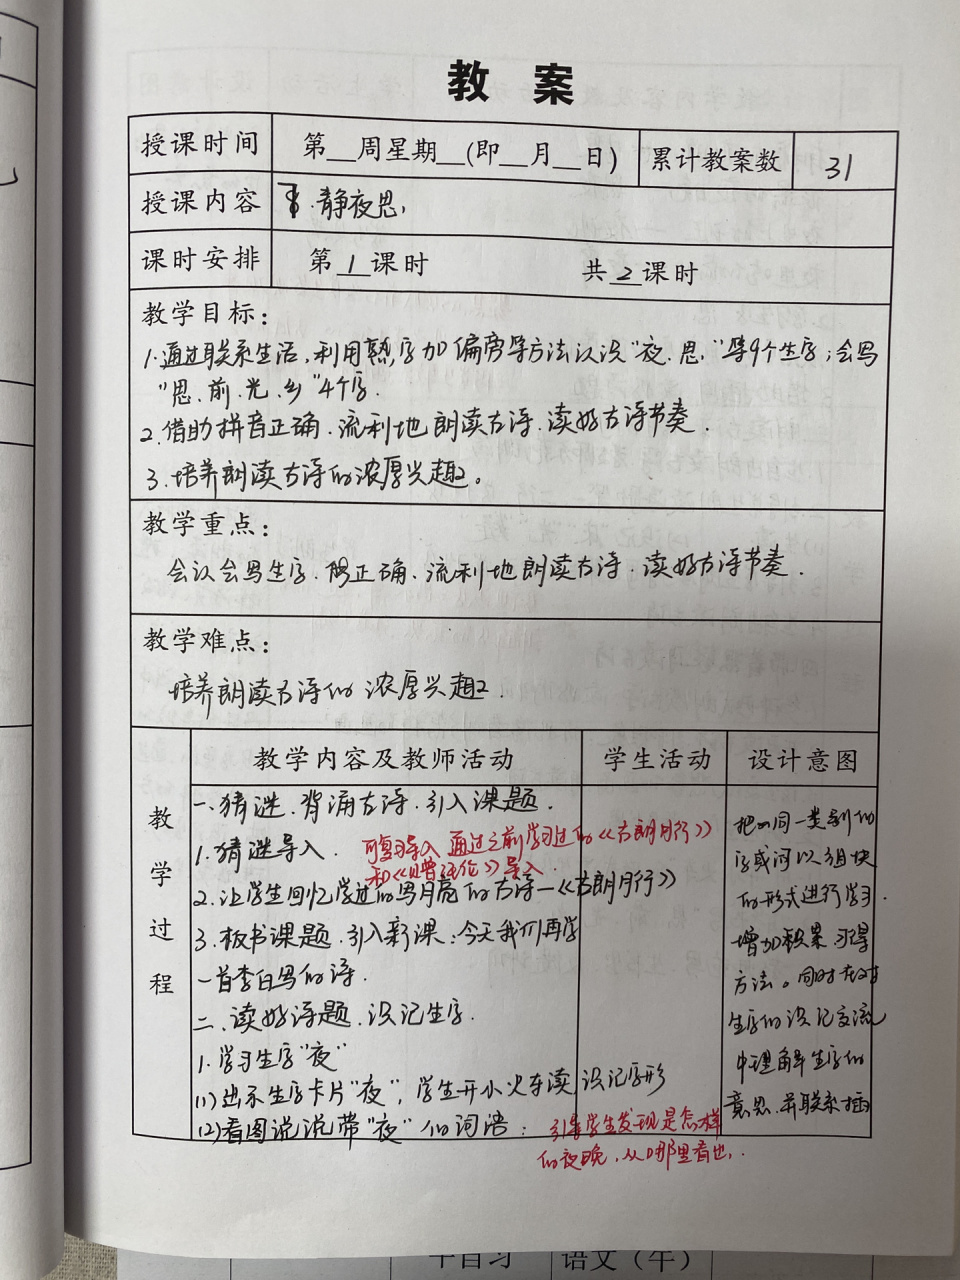 教 案
授课时间 第__周星期__(即__月__日) 累计教案数 31
授课内容 静夜思
课时安排 第 1 课时 共 2 课时
教学目标：
1.通过联系生活，利用熟字加偏旁等方法认识“夜、思”等9个生字；会写
“思、前、光、乡”4个字.
2.借助拼音正确、流利地朗读古诗，读好古诗节奏.
3.培养朗读古诗的浓厚兴趣。
教学重点：
会认会写生字. 正确、流利地朗读古诗，读好古诗节奏.
教学难点：
培养朗读古诗的浓厚兴趣.
教学过程
教学内容及教师活动 学生活动 设计意图
一、猜谜、背诵古诗，引入课题.
1.猜谜导入.
可复习导入 通过之前学习过的《古朗月行》
和《赠汪伦》导入.
2.让学生回忆学过的写月亮的古诗—《古朗月行》
3.板书课题，引入新课：今天我们再学
一首李白写的诗.
二、读好诗题，识记生字.
1.学习生字“夜”
(1)出示生字卡片“夜”，学生开小火车读 识记字形
(2)看图说说带“夜”的词语：
引导学生发现是怎样
的夜晚，从哪里看出.
把同一类别的
字或词以组块
的形式进行学习.
增加积累 习得
方法。同时在对
生字的识记交流
中理解生字的
意思，并联系插
语文（年）